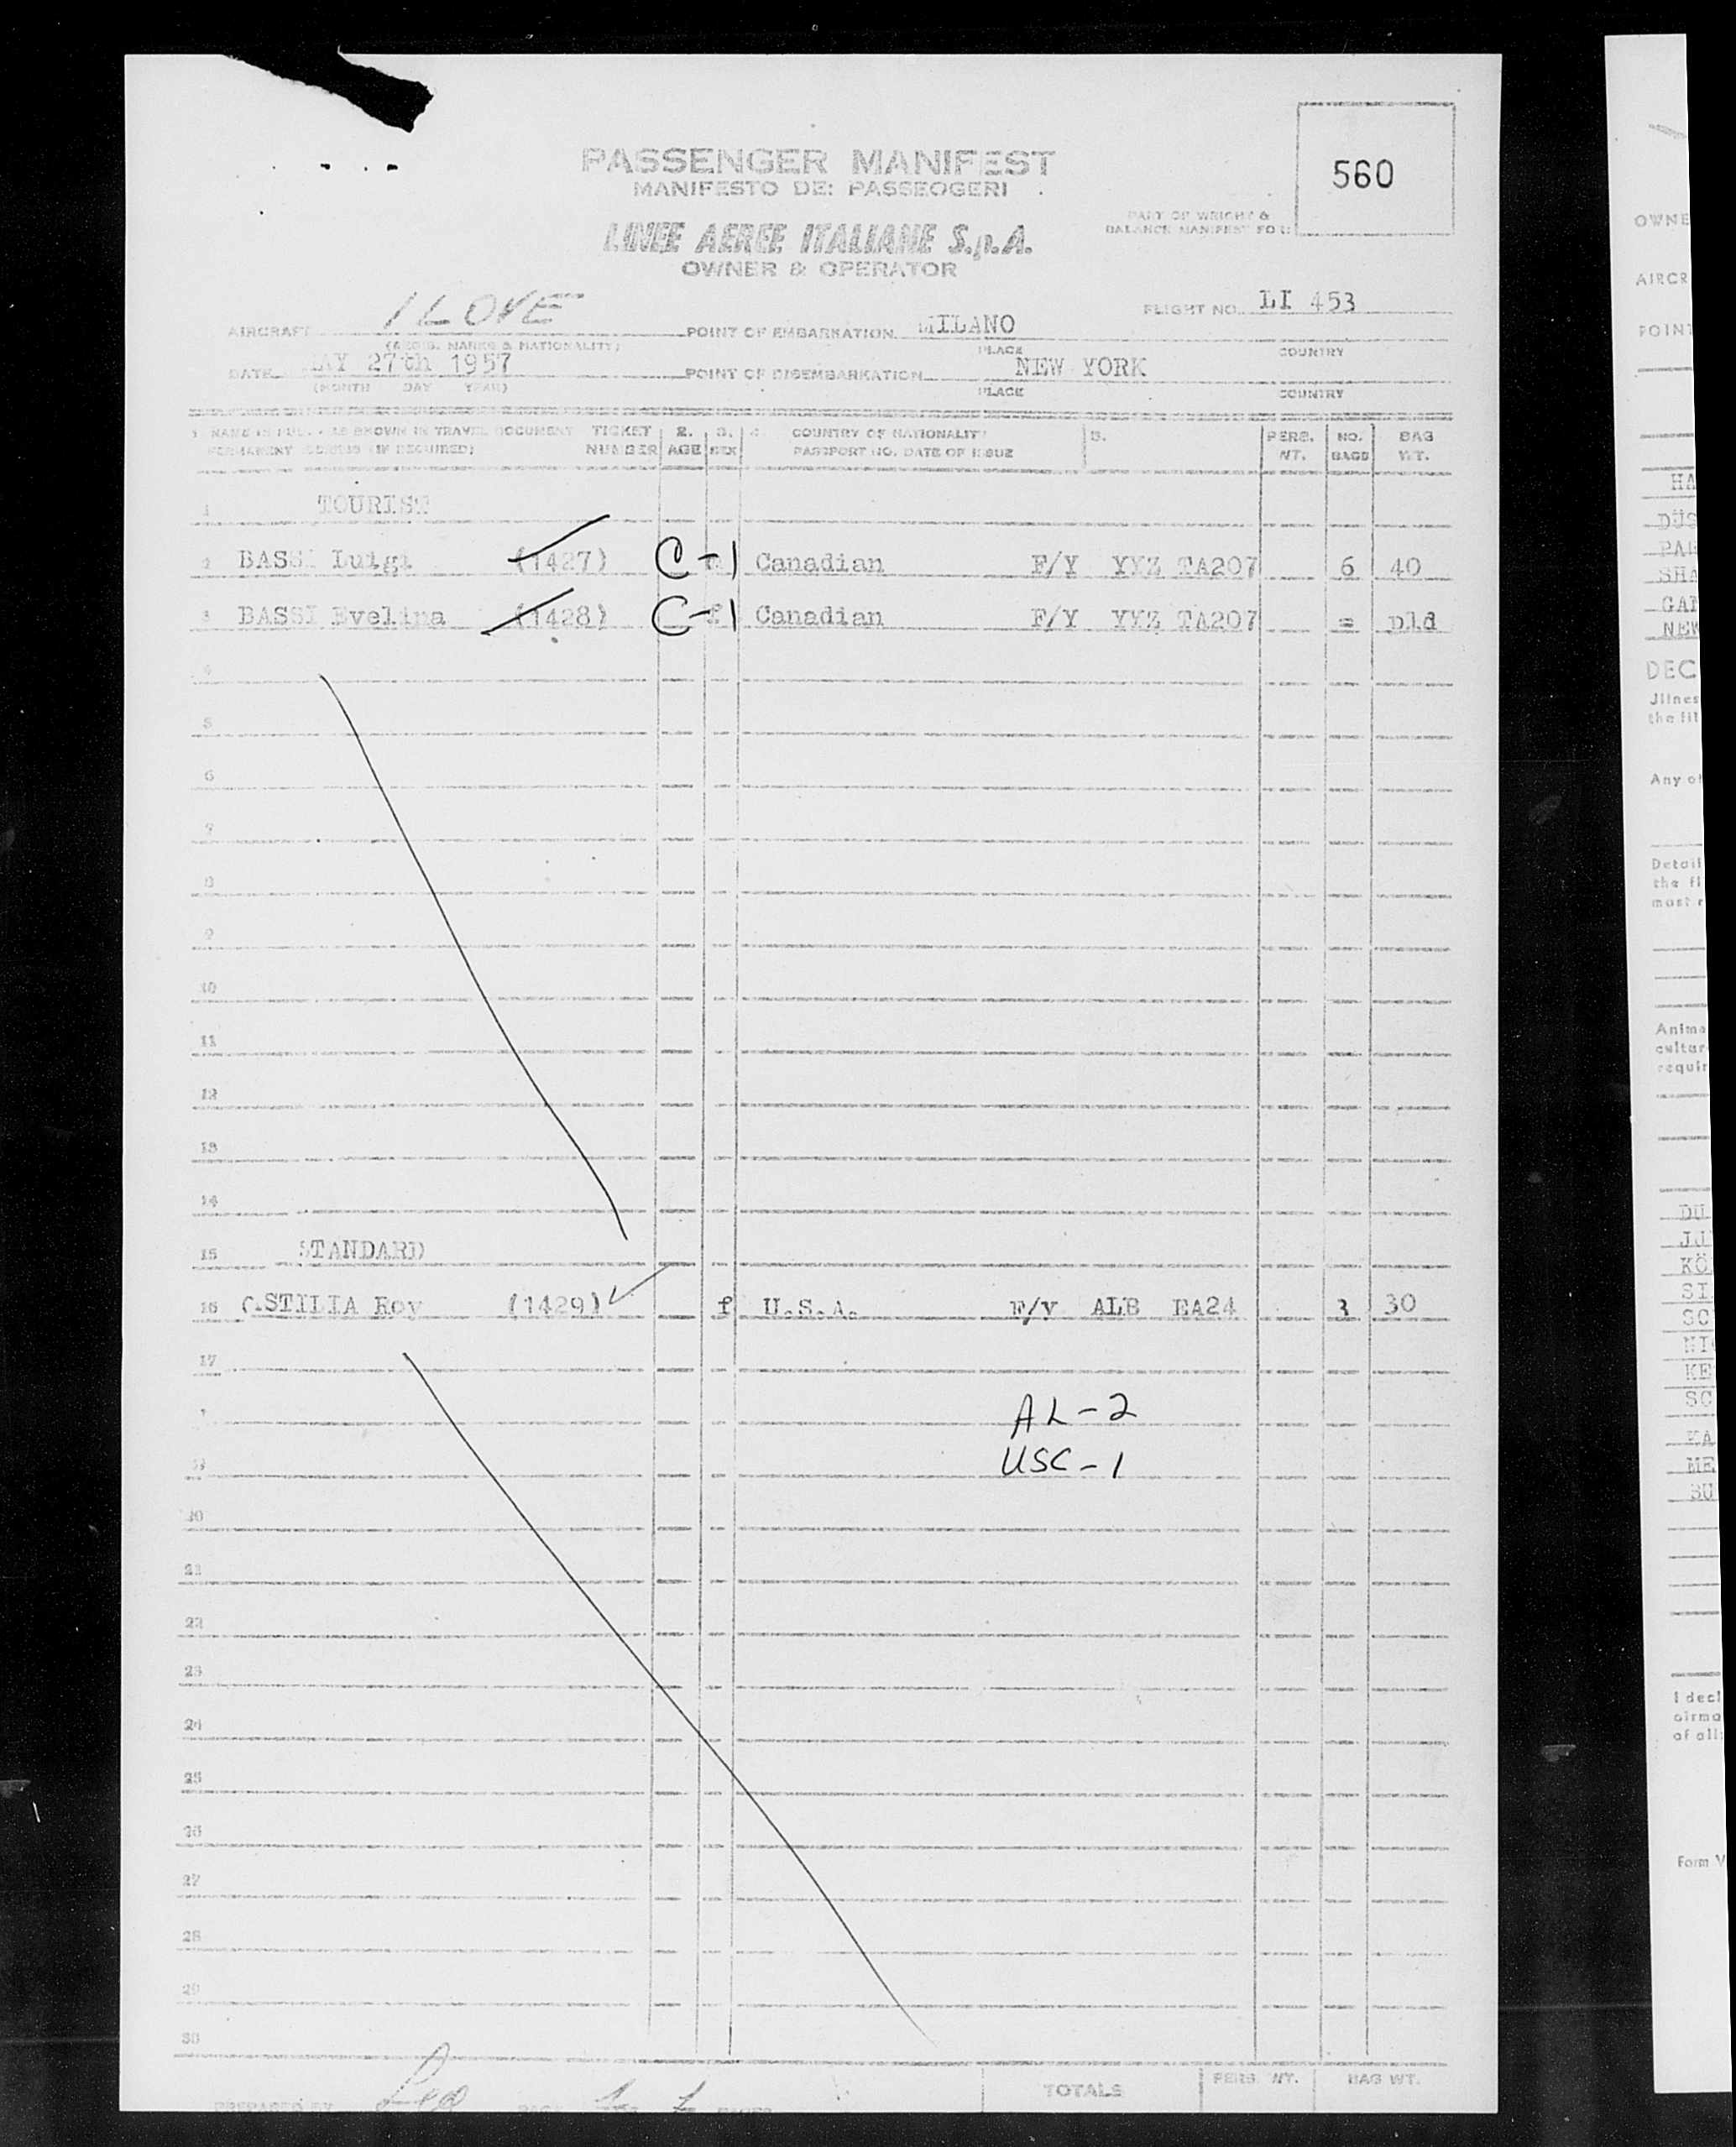 560
PASSENGER MANIFEST
MANIFESTO DE: PASSEOGERI
PART OF WRIGHT &
BALANCE MANIFEST FOR:
LINEE AEREE ITALIANE S.p.A.
OWNER & OPERATOR
AIRCRAFT I LOVE POINT OF EMBARKATION MILANO FLIGHT NO. LI 453
(REGIS. MARKS & NATIONALITY) PLACE COUNTRY
DATE MAY 27th 1957 POINT OF DISEMBARKATION NEW YORK
(MONTH DAY YEAR) PLACE COUNTRY
1 NAME IN FULL - AS SHOWN IN TRAVEL DOCUMENT TICKET 2. 3. 4. COUNTRY OF NATIONALITY 5. PERS. NO. BAG
PERMANENT ADDRESS (IF REQUIRED) NUMBER AGE SEX PASSPORT NO. DATE OF ISSUE WT. BAGS WT.
1 TOURIST
2 BASSI Luigi (1427) C-1 Canadian F/Y YYZ TA207 6 40
3 BASSI Evelina (1428) C-1 f Canadian F/Y YYZ TA207 = pld
4
5
6
7
8
9
10
11
12
13
14
15 STANDARD
16 STILIA Roy (1429) f U.S.A. F/Y ALB EA24 3 30
17
AL-2
19 USC-1
20
21
22
23
24
25
26
27
28
29
30
PREPARED BY PAGE PAGES TOTALS PERS. WT. BAG WT.
OWNE
AIRCR
POINT
HA
DÜS
PAR
SHA
GAN
NEW
DEC
Jllnes
the fli
Any ot
Detail
the fl
most r
Anima
cultur
requir
DU
JJ
KÖ
SI
SC
NI
KE
SC
KA
ME
BU
I decl
airma
of all
Form V